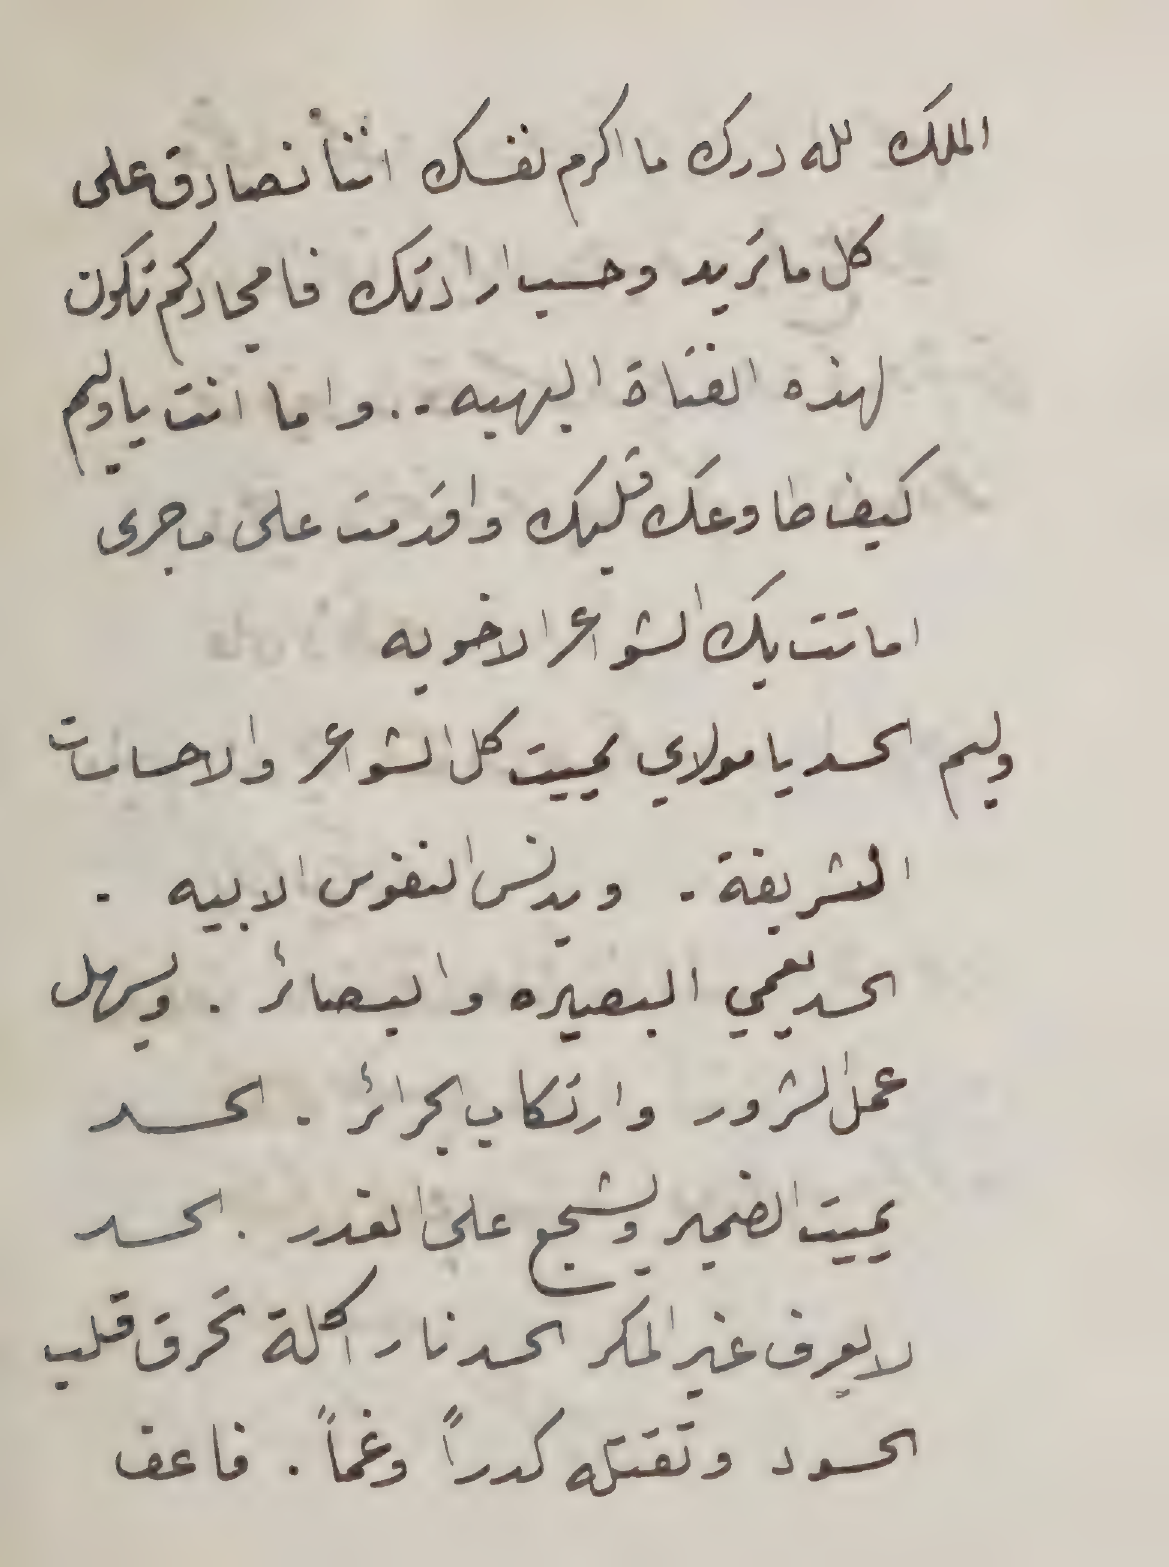 الملك لله درك ما اكرم نفسك اننا نصادق على
كل ما تريد وحسب ارادتك فامجادكم تكون
لهذه الفتاة البهيه .. واما انت يا وليم
كيف طاوعك قلبك واقدمت على ما جرى
اماتت بك الشواعر الاخويه
وليم الحسد يا مولاي يميت كل الشواعر والاحساسات
الشريفة . ويدنس النفوس الابيه .
الحسد يعمي البصيره والبصائر . ويسهل
عمل الشرور وارتكاب الجرائر . الحسد
يميت الضمير ويشجع على الغدر . الحسد
لا يعرف غير المكر الحسد نار اكلة تحرق قلب
الحسود وتقتله كدراً وغماً . فاعف